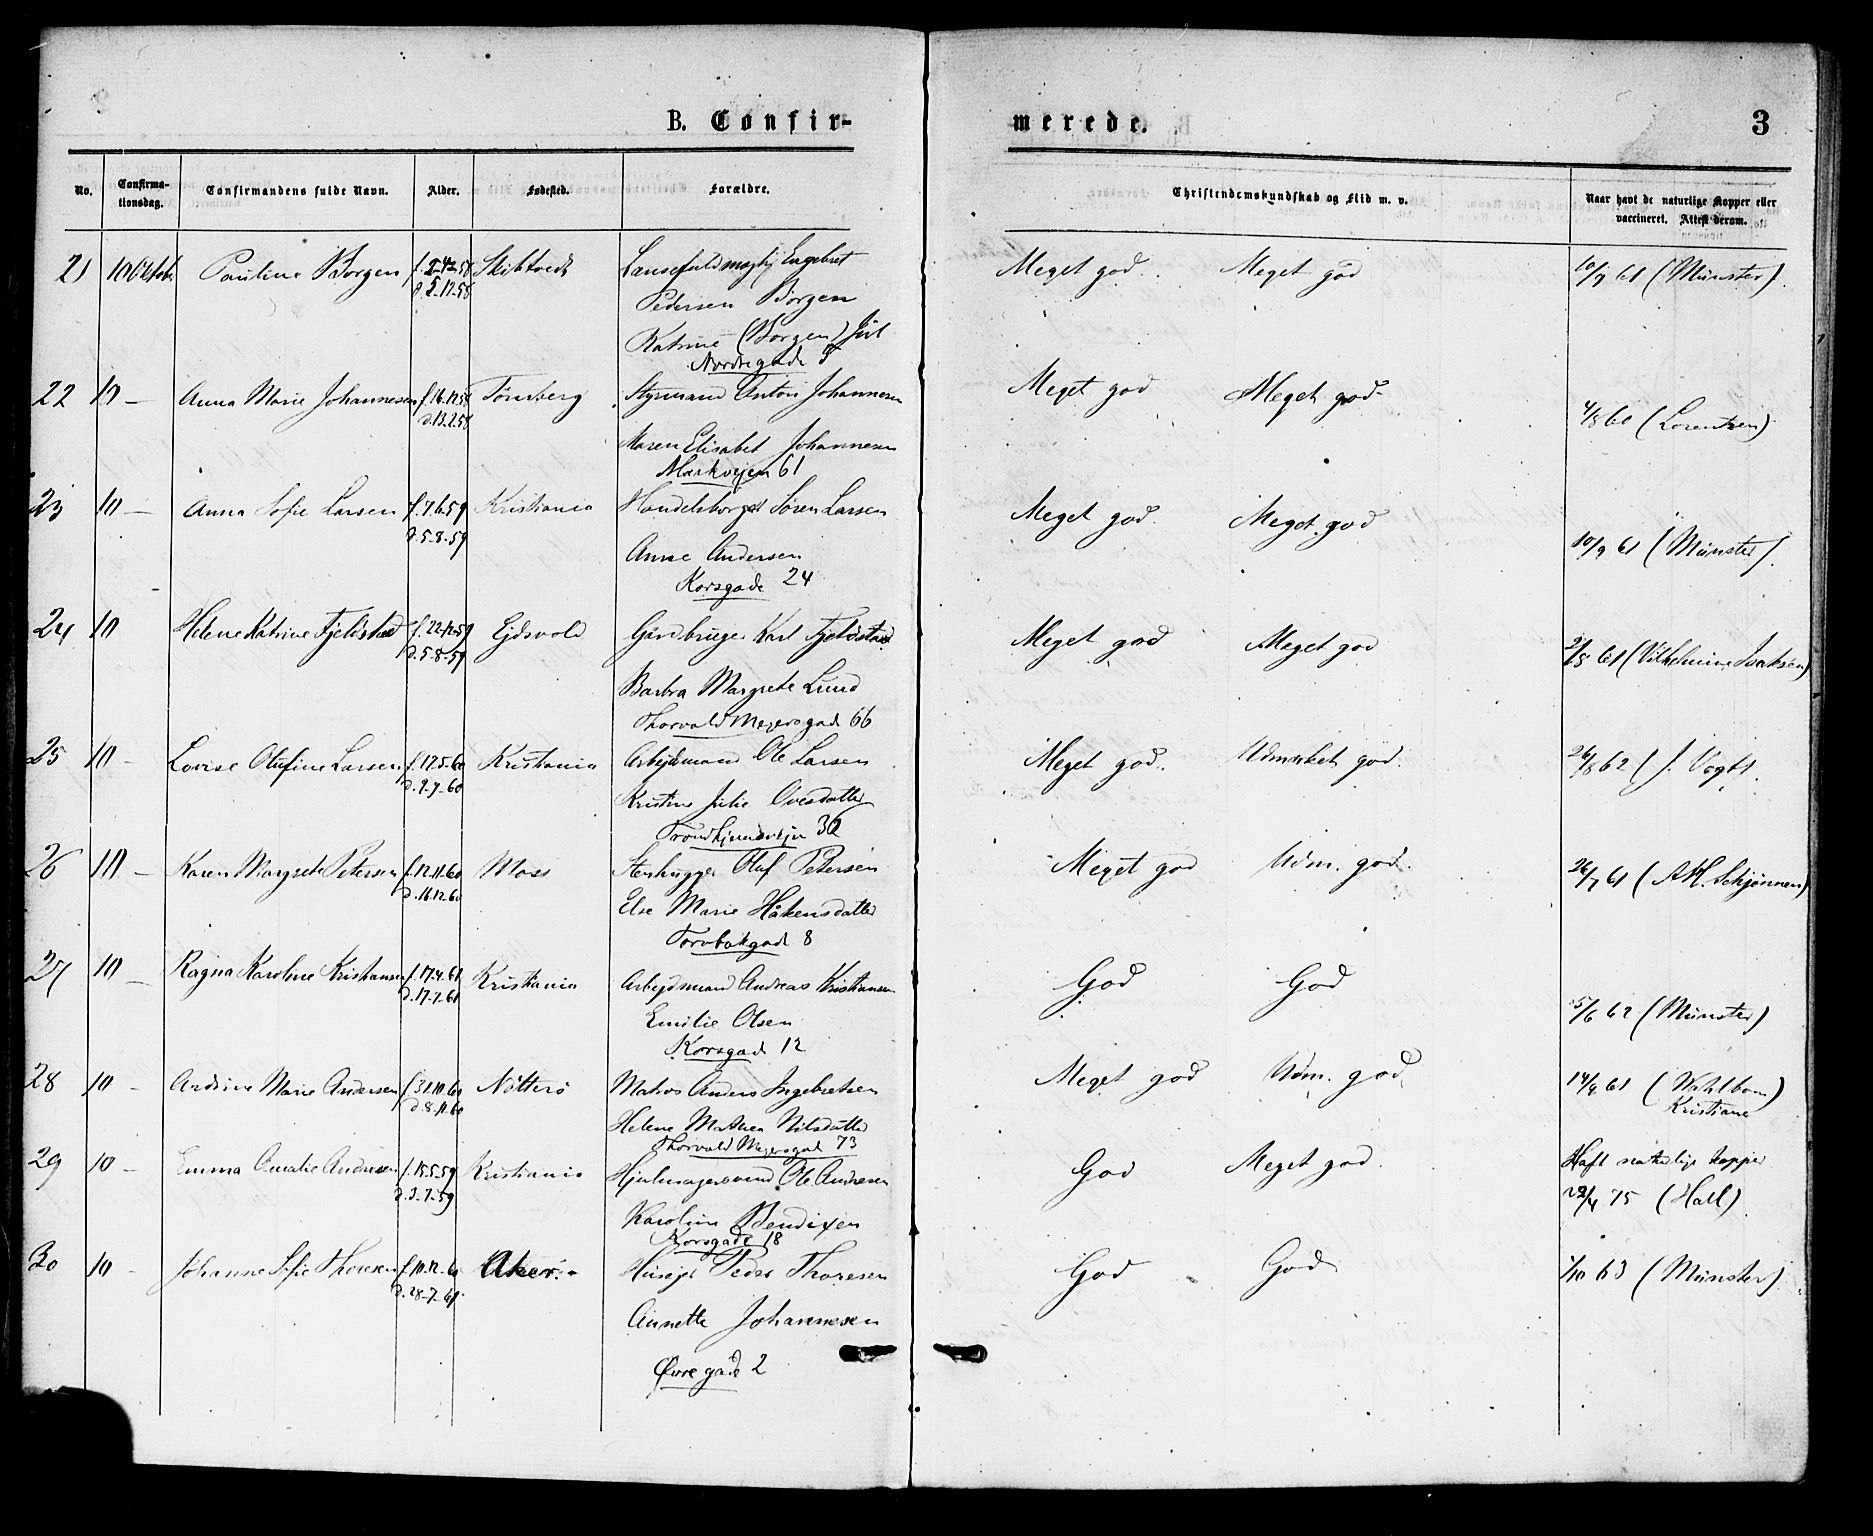 B. Confir-
merede.
3
No.
Confirma-
tionsdag.
Confirmandens fulde Navn.
Alder.
Fødested.
Forældre.
Christendomskundskab og Flid m. v.
Naar havt de naturlige Kopper eller
vaccineret. Attest derom.
21 10 Oktob Pauline Borgen Engebret Meget god. Meget god 10/9 61 (Münster).
d. 5-12-58 Pedersen Borgen
Katrine (Borgen)
Nordregade 5
22 10 — Anna Marie Johannesen f. 16.12.58 Tønsberg Styrmand Anton Johannesen Meget god Meget god
d. 13.2.58 4/8 60 (Lorentzen)
Maren Elisabet Johannesen
Markvejen 61
23 10 — Anna Sofie Larsen f. 7.6.59 Kristiania Handelsborger Søren Larsen Meget god. Meget god
d. 5-8-59 10/9 61 (Münster).
Anne Andersen
Korsgade 24
24 10 Helene Katrine Fjeldstad f. 22-12-59 Ejdsvold Gårdbruger Karl Fjeldstad Meget god Meget god
d. 5-8-59 2/8 61 (Vilhelmine Isaksen)
Barbra Margrete Lund
Thorvald Meyersgade 66
25 10 — Lovise Olufine Larsen f. 12.5-60 Kristiania Arbejdsmand Ole Larsen Meget god. Udmærket god. 26/8 62 (J. Vogt).
d. 2-7-60
Kristine Julie Ovesdatter
Trondhjemsvejen 36
26 10 — Karen Margrete Petersen f. 12.11.60 Moss Stenhugger Oluf Petersen Meget god Udm. god. 26/7 61 (A.H. Schjønnen)
d. 16.12.60
Else Marie Håkensdatter
Torvbakgade 8
27 10 — Ragna Karoline Kristiansen f. 17.4.61 Kristiania Arbejdsmand Andreas Kristiansen God God
d. 17.7.61 5/6 62 (Münster)
Emilie Olsen
Korsgade 12
28 10 — Andrine Marie Andersen f. 31.10.60 Nøtterø Matros Anders Ingebretsen Meget god Udm. god. 14/9 61 (Wahlbom
d. 8.11.60 Kristiane)
Helene Mathea Nilsdatter
Thorvald Meyersgade 73
29 10 — Emma Amalie Andresen f. 15.5.59 Kristiania Hjulmagersvend Ole Andresen God Meget god. Haft naturlige kopper
d. 3-7-59 22/4 75 (Hall)
Karoline Bendixen
Korsgade 18
30 10 — Johanne Sofie Thoresen f. 10.12-60 Aker. Huseier Peder Thoresen God God. 1/10 63 (Münster)
d. 28-7-61.
Annette Johannesen
Øvregade 2